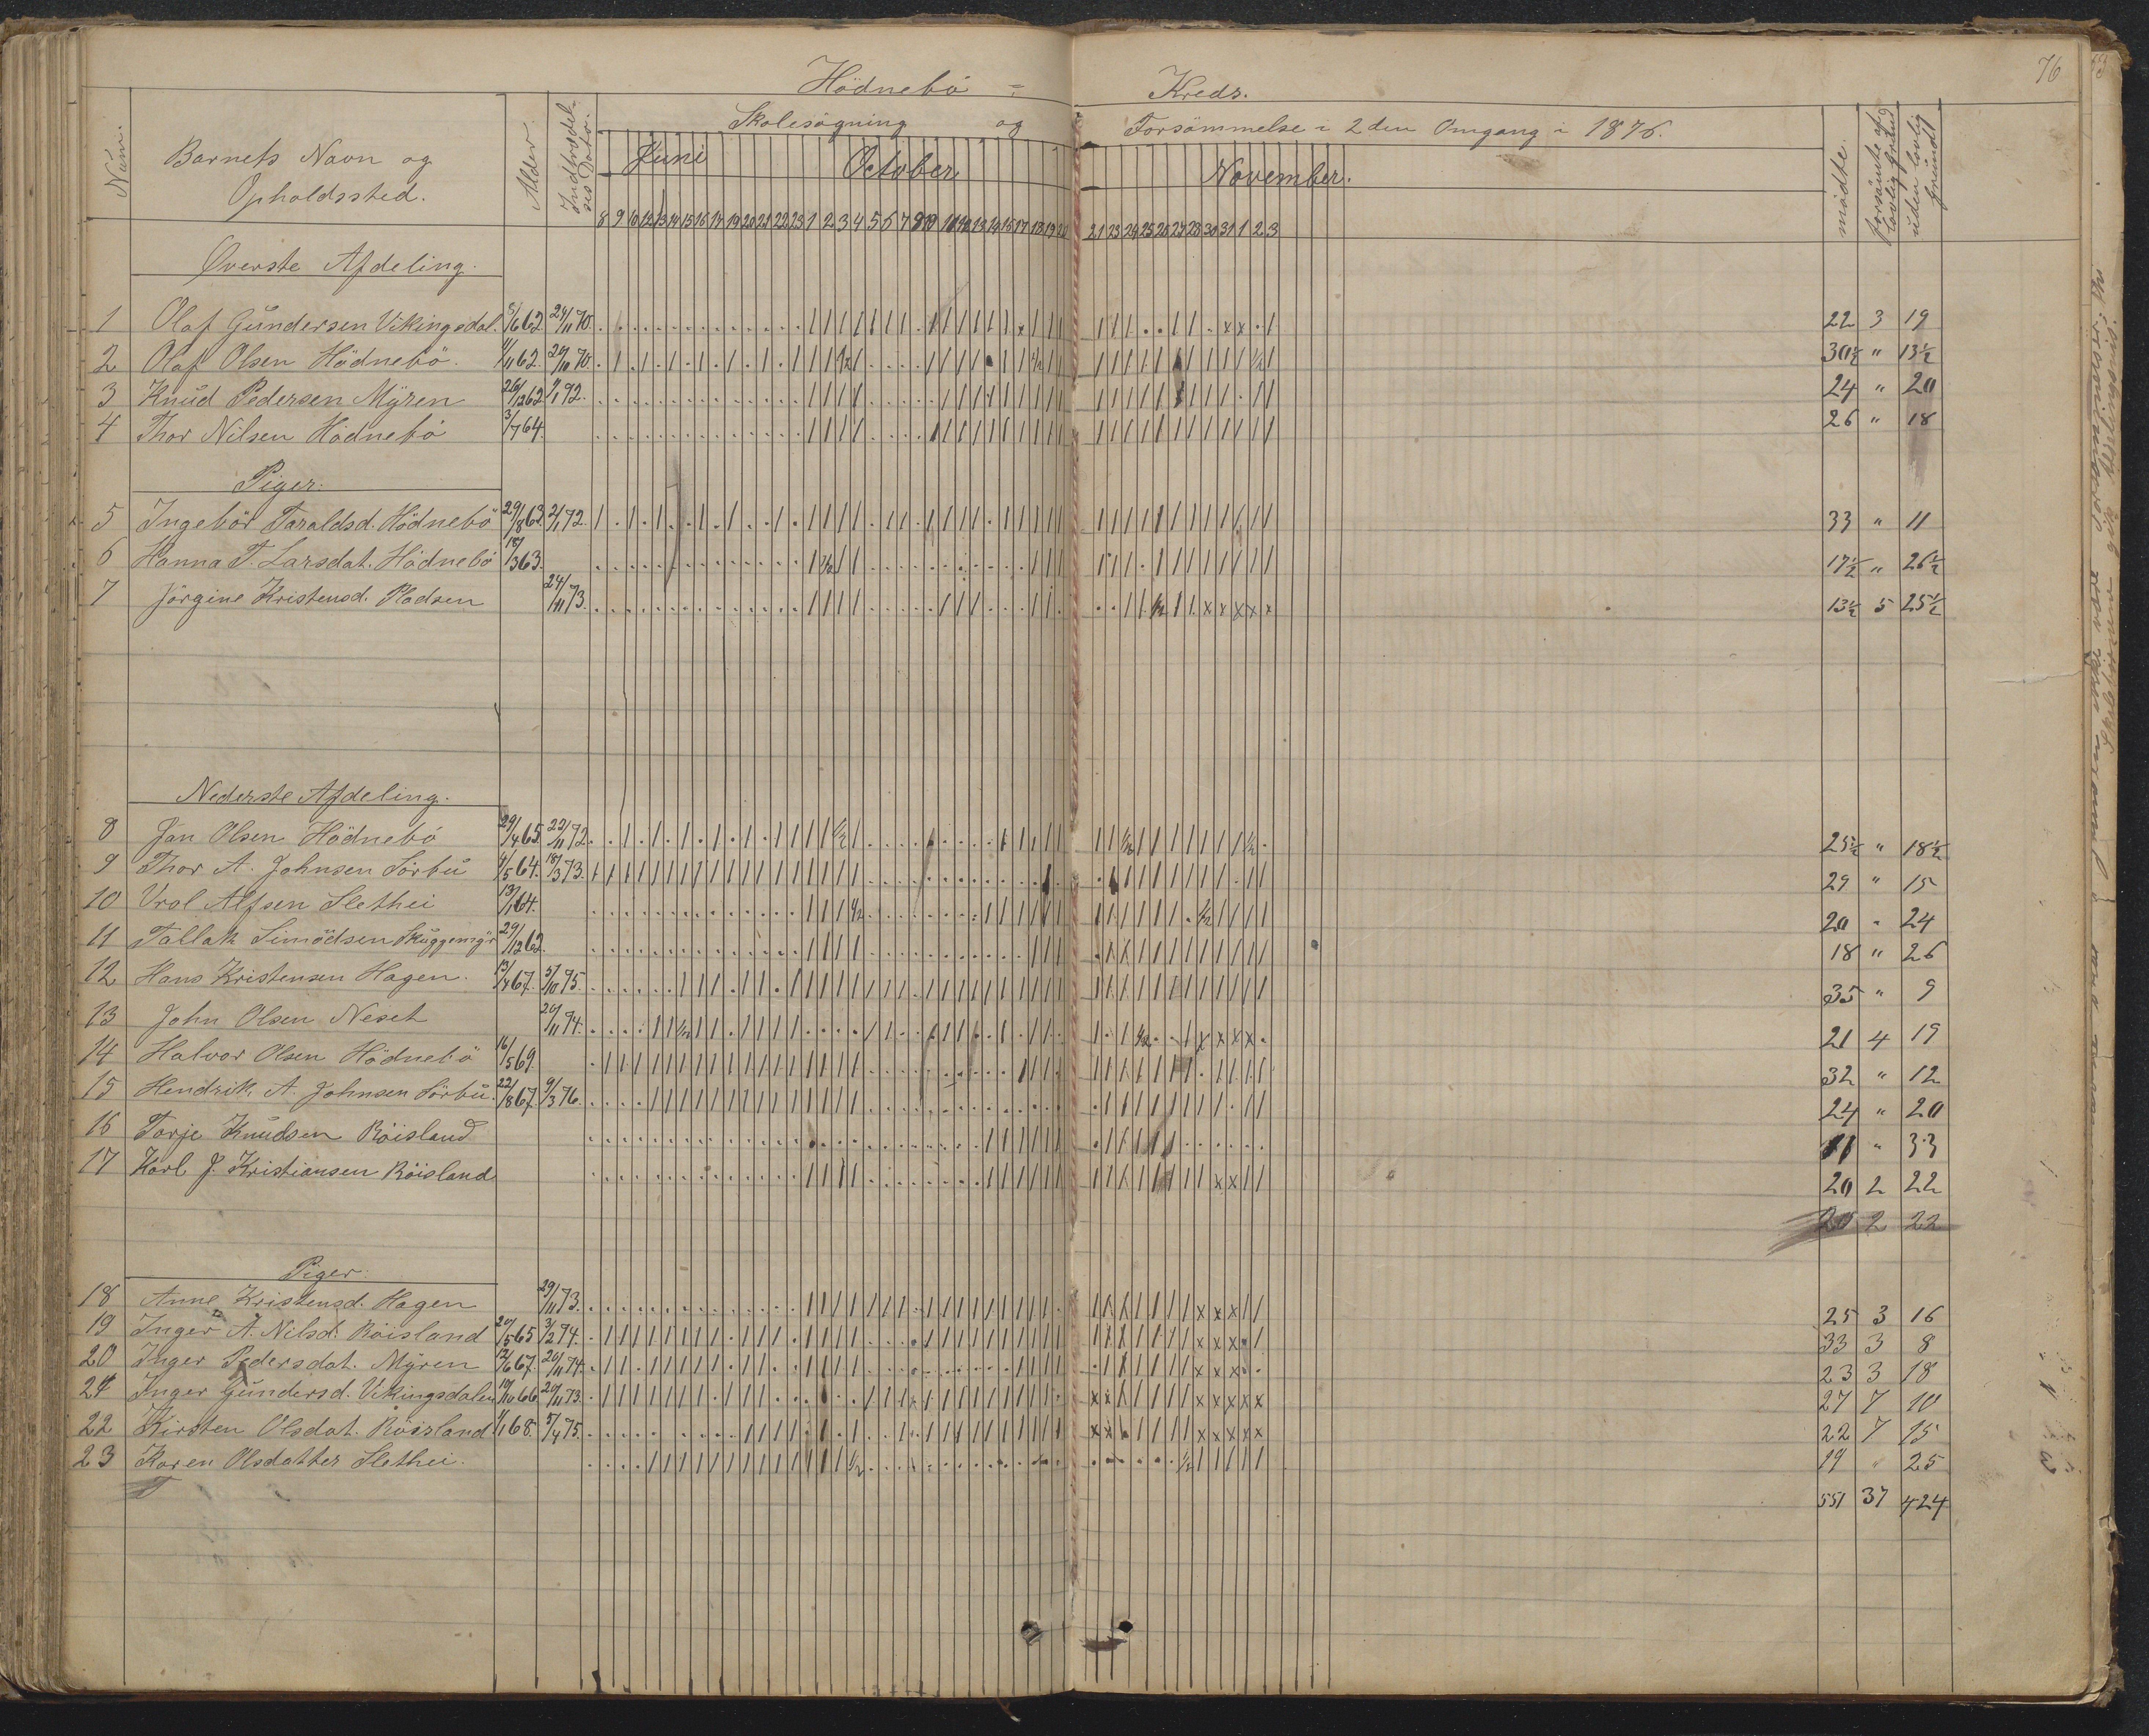 76
Hödnebö = Kreds.
Num. Barnets Navn og Opholdssted. Alder. Indtrædelses Dato. Skolesögning og Forsömmelse i 2den Omgang i 1876. mödte. forsömte af lovlig grund uden lovlig grund
Juni October November.
8 9 10 12 13 14 15 16 17 19 20 21 22 23 1 2 3 4 5 6 7 9 10 11 12 13 14 16 17 18 19 20 21 23 24 25 26 27 28 30 31 1 2 3
Øverste Afdeling.
1 Olaf Gundersen Vikingsdal. 5/6 62. 24/11 70. 22 3 19
2 Olaf Olsen Hödnebö. 4/11 62. 24/10 70. 30½ " 13½
3 Knud Pedersen Myren 26/12 62 7/1 72. 24 " 20
4 Thor Nilsen Hödnebö 3/7 64. 26 " 18
Piger.
5 Ingebör Taraldsd. Hödnebö 29/8 63. 2/1 72. 33 " 11
6 Hanna T. Larsdat. Hödnebö 18/3 63. 17½ " 26½
7 Jörgine Kristensd. Pladsen 24/11 73. 13½ 5 25½
Nederste Afdeling.
8 Jan Olsen Hödnebö 29/4 65. 22/11 72. 25½ " 18½
9 Thor A. Johnsen Sörbu 4/5 64. 18/3 73. 29 " 15
10 Vrol Alfsen Slethei 13/1 64. 20 " 24
11 Tallak Simodsen Skuggemyr 29/12 62. 18 " 26
12 Hans Kristensen Hagen. 13/4 67. 5/10 75. 35 " 9
13 John Olsen Neset 20/11 74. 21 4 19
14 Halvor Olsen Hödnebö 16/5 69. 32 " 12
15 Hendrik A. Johnsen Sörbu. 22/8 67. 9/3 76. 24 " 20
16 Torje Knudsen Röisland 11 " 33
17 Karl J. Kristiansen Röisland 20 2 22
20 2 22
Piger.
18 Anne Kristensd. Hagen 29/11 73. 25 3 16
19 Inger A. Nilsd. Röisland 20/5 65 3/2 74. 33 3 8
20 Inger Pedersdat. Myren 12/6 67. 20/11 74. 23 3 18
21 Inger Gundersd. Vikingsdalen 10/10 66. 20/11 73. 27 7 10
22 Kirsten Olsdat. Röisland 1/1 68. 5/4 75. 22 7 15
23 Karen Olsdatter Slethei. 19 " 25
551 37 424